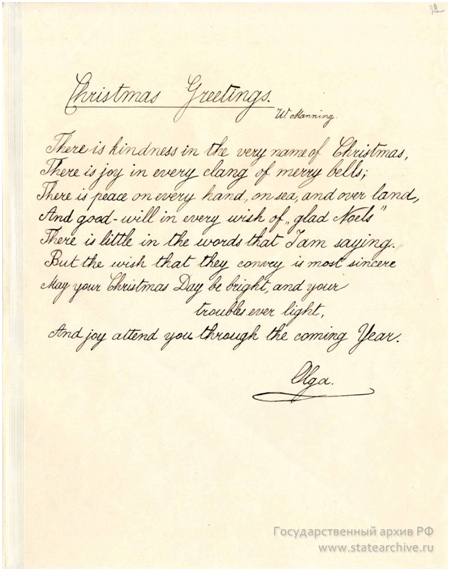 Christmas Greetings.
W. Manning.
There is kindness in the very name of Christmas,
There is joy in every clang of merry bells;
There is peace on every hand, on sea, and over land,
And good-will in every wish of „glad Noels"
There is little in the words that I am saying.
But the wish that they convey is most sincere
May your Christmas Day be bright, and your
troubles ever light,
And joy attend you through the coming Year.
Olga.
Государственный архив РФ
www.statearchive.ru